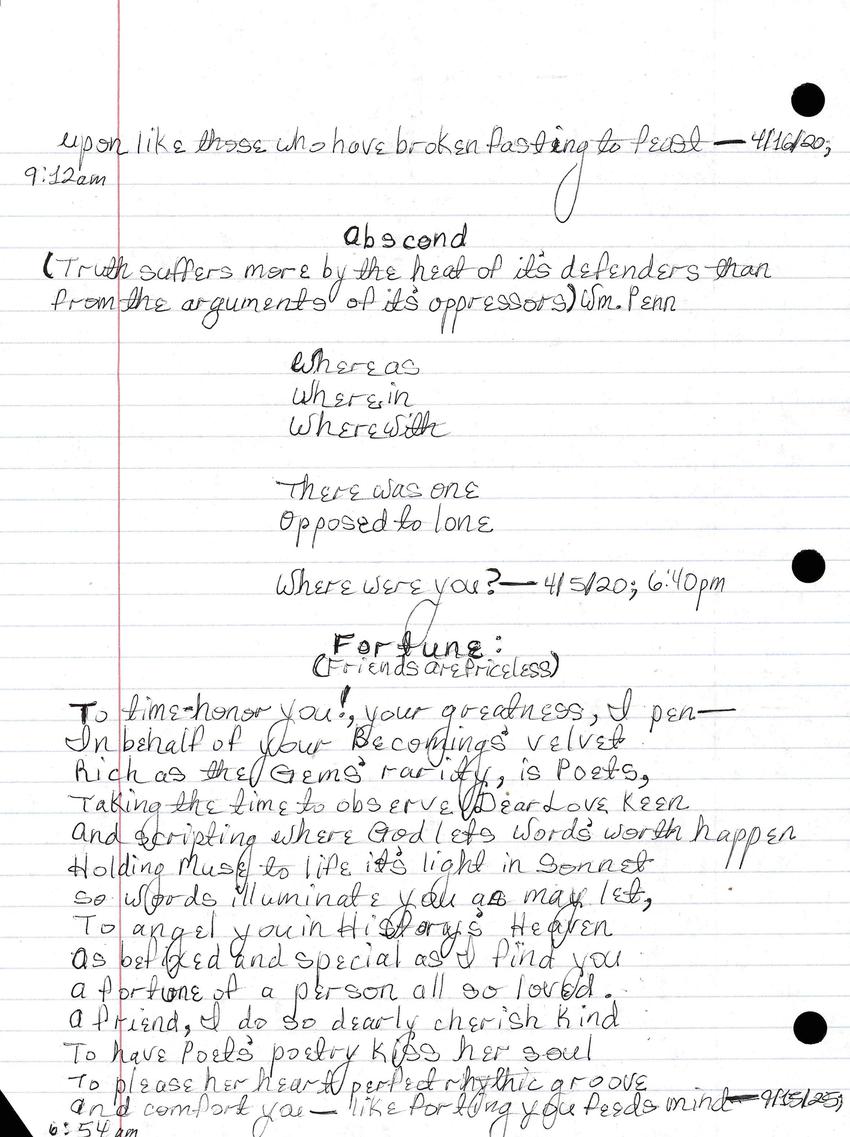 upon like those who have broken fasting to feast — 4/16/20;
9:12am
Abscond
(Truth suffers more by the heat of it's defenders than
from the arguments of it's oppressors) Wm. Penn
Whereas
Wherein
Wherewith
There was one
Opposed to lone
Where were you? — 4/5/20; 6:40pm
Fortune:
(Friends are Priceless)
To time-honor you!, your greatness, I pen—
In behalf of your Becomings' velvet
Rich as the Gems' rarity, is Poets,
Taking the time to observe Dear Love Keen
And scripting where God lets words' worth happen
Holding Muse to life it's light in Sonnet
so words illuminate you as may let,
To angel you in History's Heaven
As and special as I find you
a fortune of a person all so loved.
A friend, I do so dearly cherish kind
To have Poets' poetry kiss her soul
To please her heart perfect rhythic groove
And comfort you — like you feeds mind — 4/15/25;
6:54am